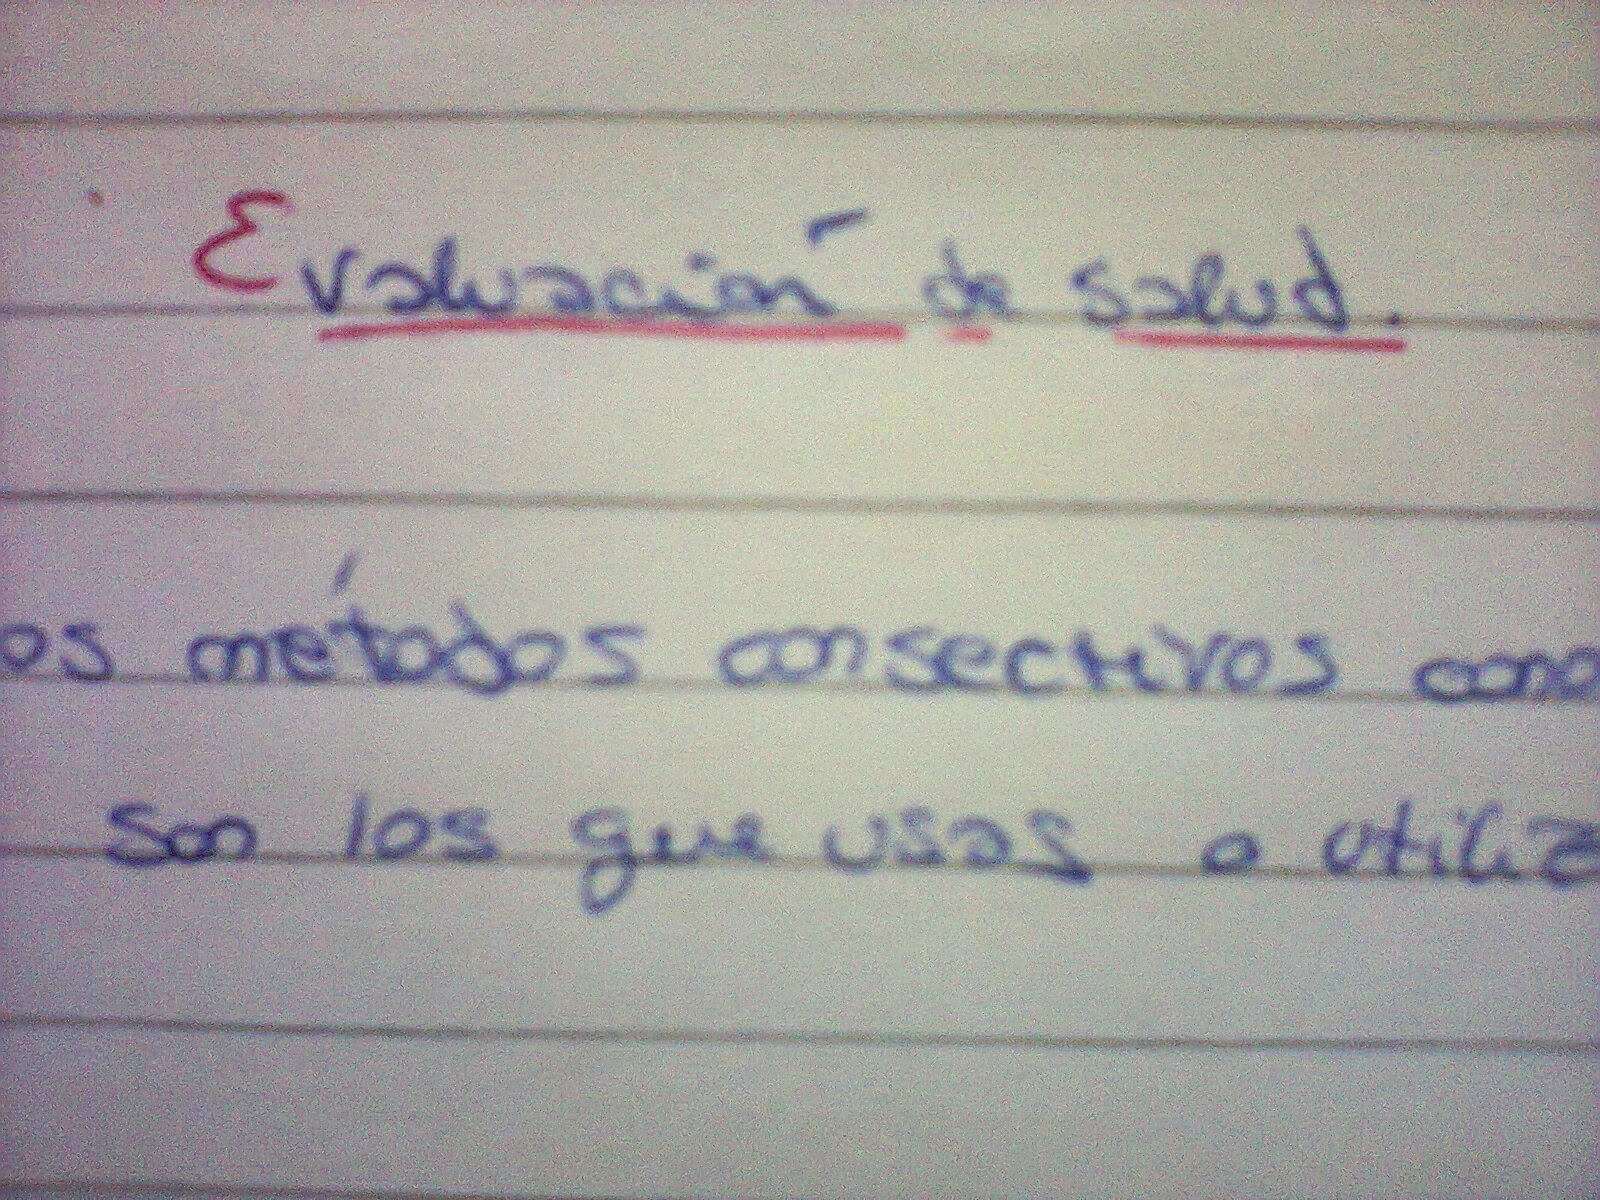 Evaluación de salud.
os métodos consectivos cono
son los que usas o utiliz